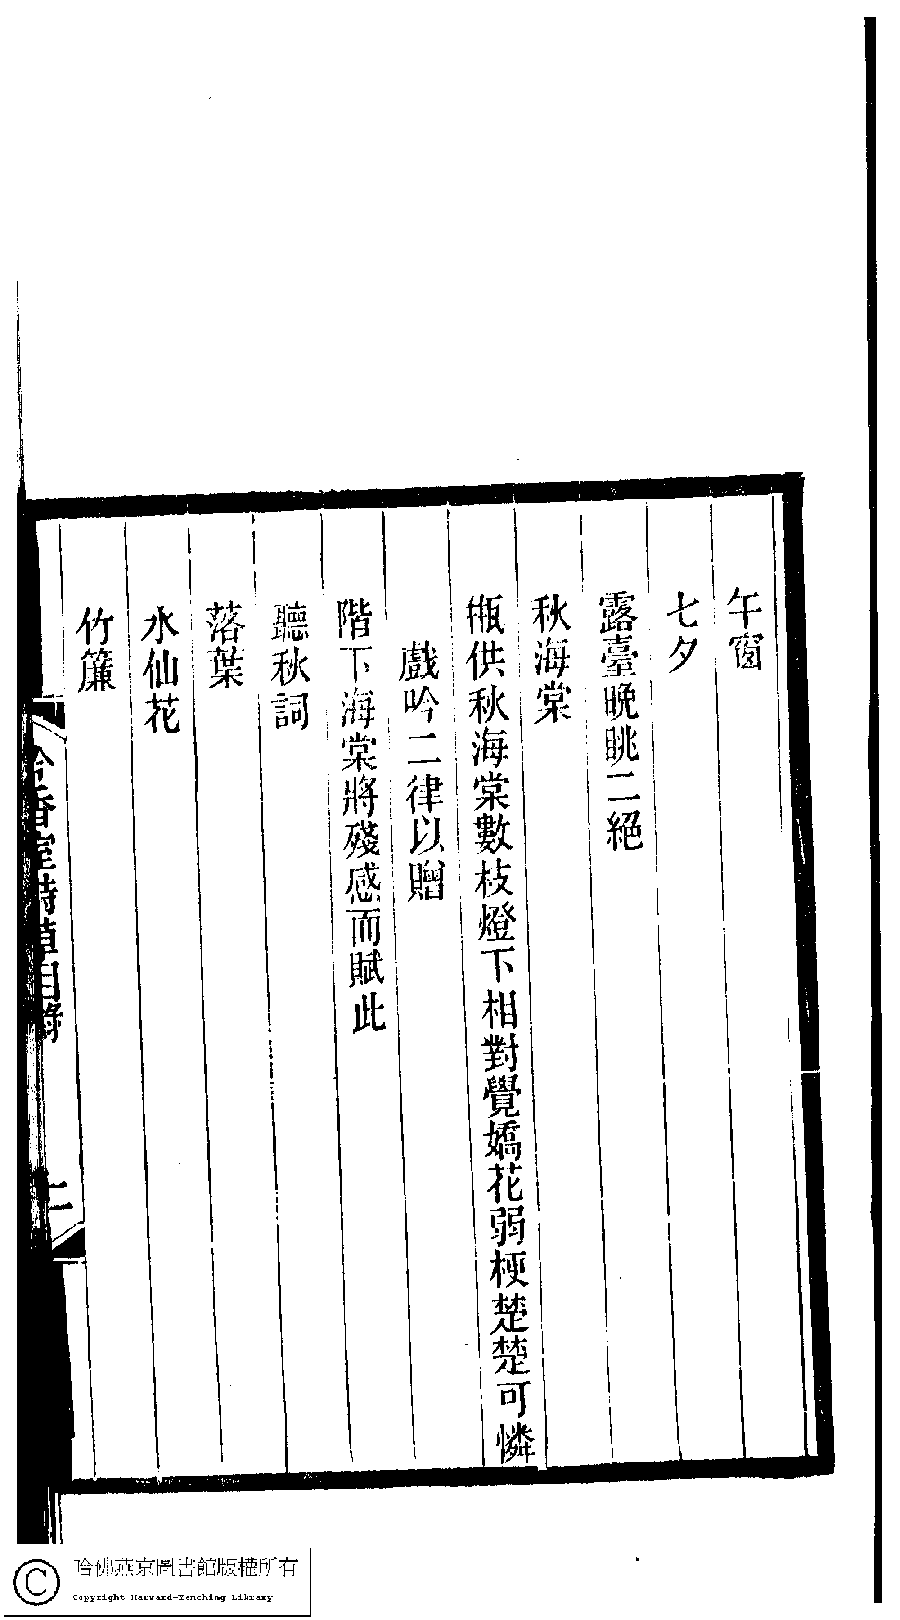 午窗
七夕
露臺晚眺二絕
秋海棠
瓶供秋海棠數枝燈下相對覺嬌花弱梗楚楚可憐
戲吟二律以贈
階下海棠將殘感而賦此
聽秋詞
落葉
水仙花
竹簾
冷香室詩草目錄
哈佛燕京圖書館版權所有
Copyright Harvard-Yenching Library